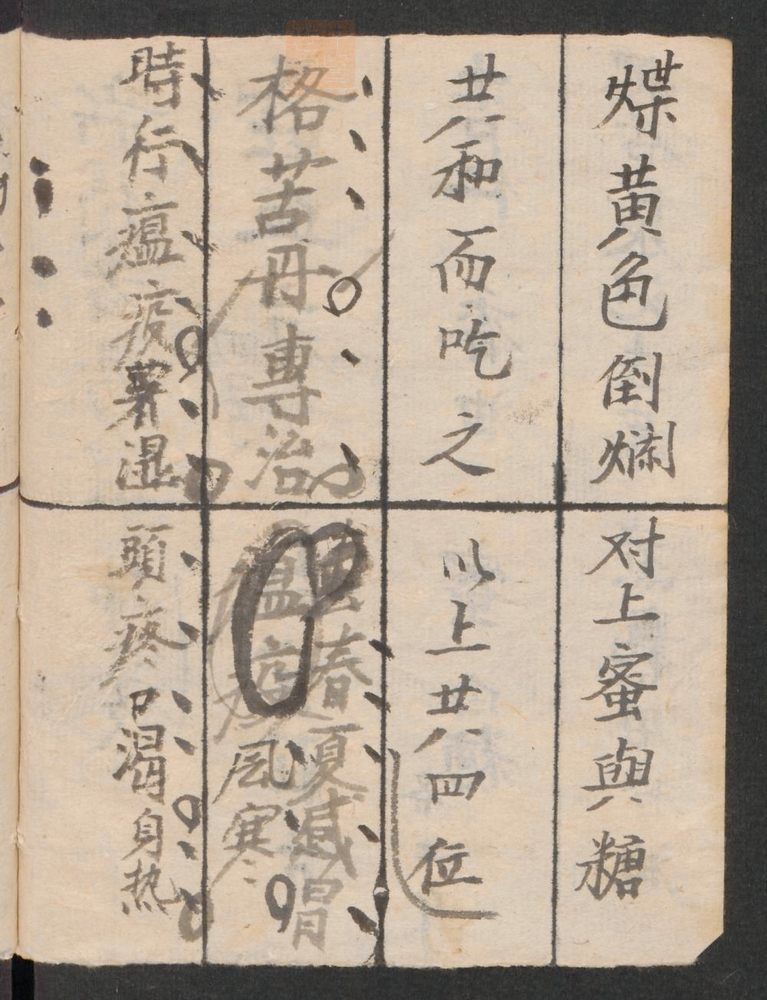 煤黄色倒爛
对上蜜與糖
共和而吃之
以上共四位
格苦丹專治
春夏感冒
瘟疫風寒
時行瘟疫暑濕
頭疼口渴身热